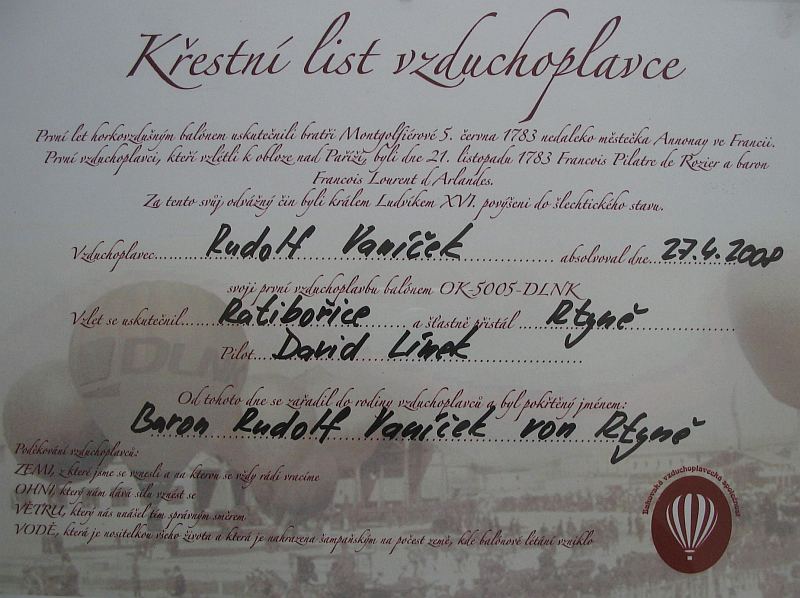 Křestní list vzduchoplavce
První let horkovzdušným balónem uskutečnili bratři Montgolfiérové 5. června 1783 nedaleko městečka Annonay ve Francii.
První vzduchoplavci, kteří vzlétli k obloze nad Paříží, byli dne 21. listopadu 1783 Francois Pilatre de Rozier a baron
Francois Lourent d Arlandes.
Za tento svůj odvážný čin byli králem Ludvíkem XVI. povýšeni do šlechtického stavu.
Vzduchoplavec Rudolf Vaníček absolvoval dne 27.4.2008
svoji první vzduchoplavbu balónem OK-5005-DLNK
Vzlet se uskutečnil Ratibořice a šťastně přistál Rtyně
Pilot David Línek
Od tohoto dne se zařadil do rodiny vzduchoplavců a byl pokřtěný jménem:
Baron Rudolf Vaníček von Rtyně
Poděkování vzduchoplavců:
ZEMI, z které jsme se vznesli a na kterou se vždy rádi vracíme
OHNI, který nám dává sílu vznést se
VĚTRU, který nás unášel tím správným směrem
VODĚ, která je nositelkou všeho života a která je nahrazena šampaňským na počest země, kde balónové létání vzniklo
DLN
Babovská vzduchoplavecká společnost